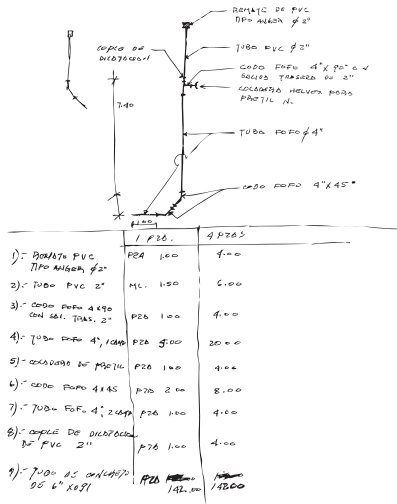 REMATE DE PVC
TIPO ANGER ø 2"
COPLE DE
DILATACION
TUBO PVC ø 2"
CODO FOFO 4" X 90° CON
SALIDA TRASERA DE 2"
COLADERA HELVEX PARA
PRETIL N.
7.40
TUBO FOFO ø 4"
CODO FOFO 4" X 45°
1.00
1 PZA. 4 PZAS
1).- REMATE PVC
TIPO ANGER ø 2" PZA 1.00 4.00
2).- TUBO PVC 2" ML. 1.50 6.00
3).- CODO FOFO 4X90
CON SAL. TRAS. 2" PZA 1.00 4.00
4).- TUBO FOFO 4", 1 CAMP PZA 5.00 20.00
5).- COLADERA DE PRETIL PZA 1.00 4.00
6).- CODO FOFO 4X45 PZA 2.00 8.00
7).- TUBO FOFO 4", 2 CAMP PZA 1.00 4.00
8).- COPLE DE DILATACION
DE PVC 2" PZA 1.00 4.00
9).- TUBO DE CONCRETO
DE 6" X 0.91 PZA 142.00 142.00